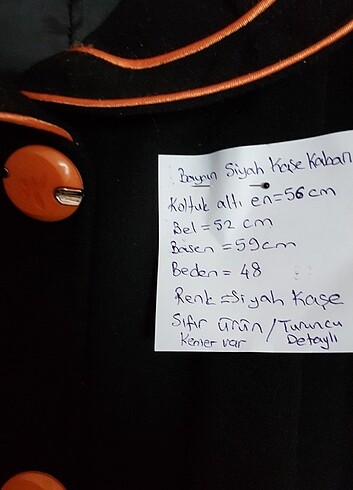 Bayan Siyah Kaşe Kaban
Koltuk altı en=56cm
Bel=52 cm
Basen=59cm
Beden= 48
Renk=Siyah Kaşe
Sıfır ürün / Turuncu
Kemer var Detaylı